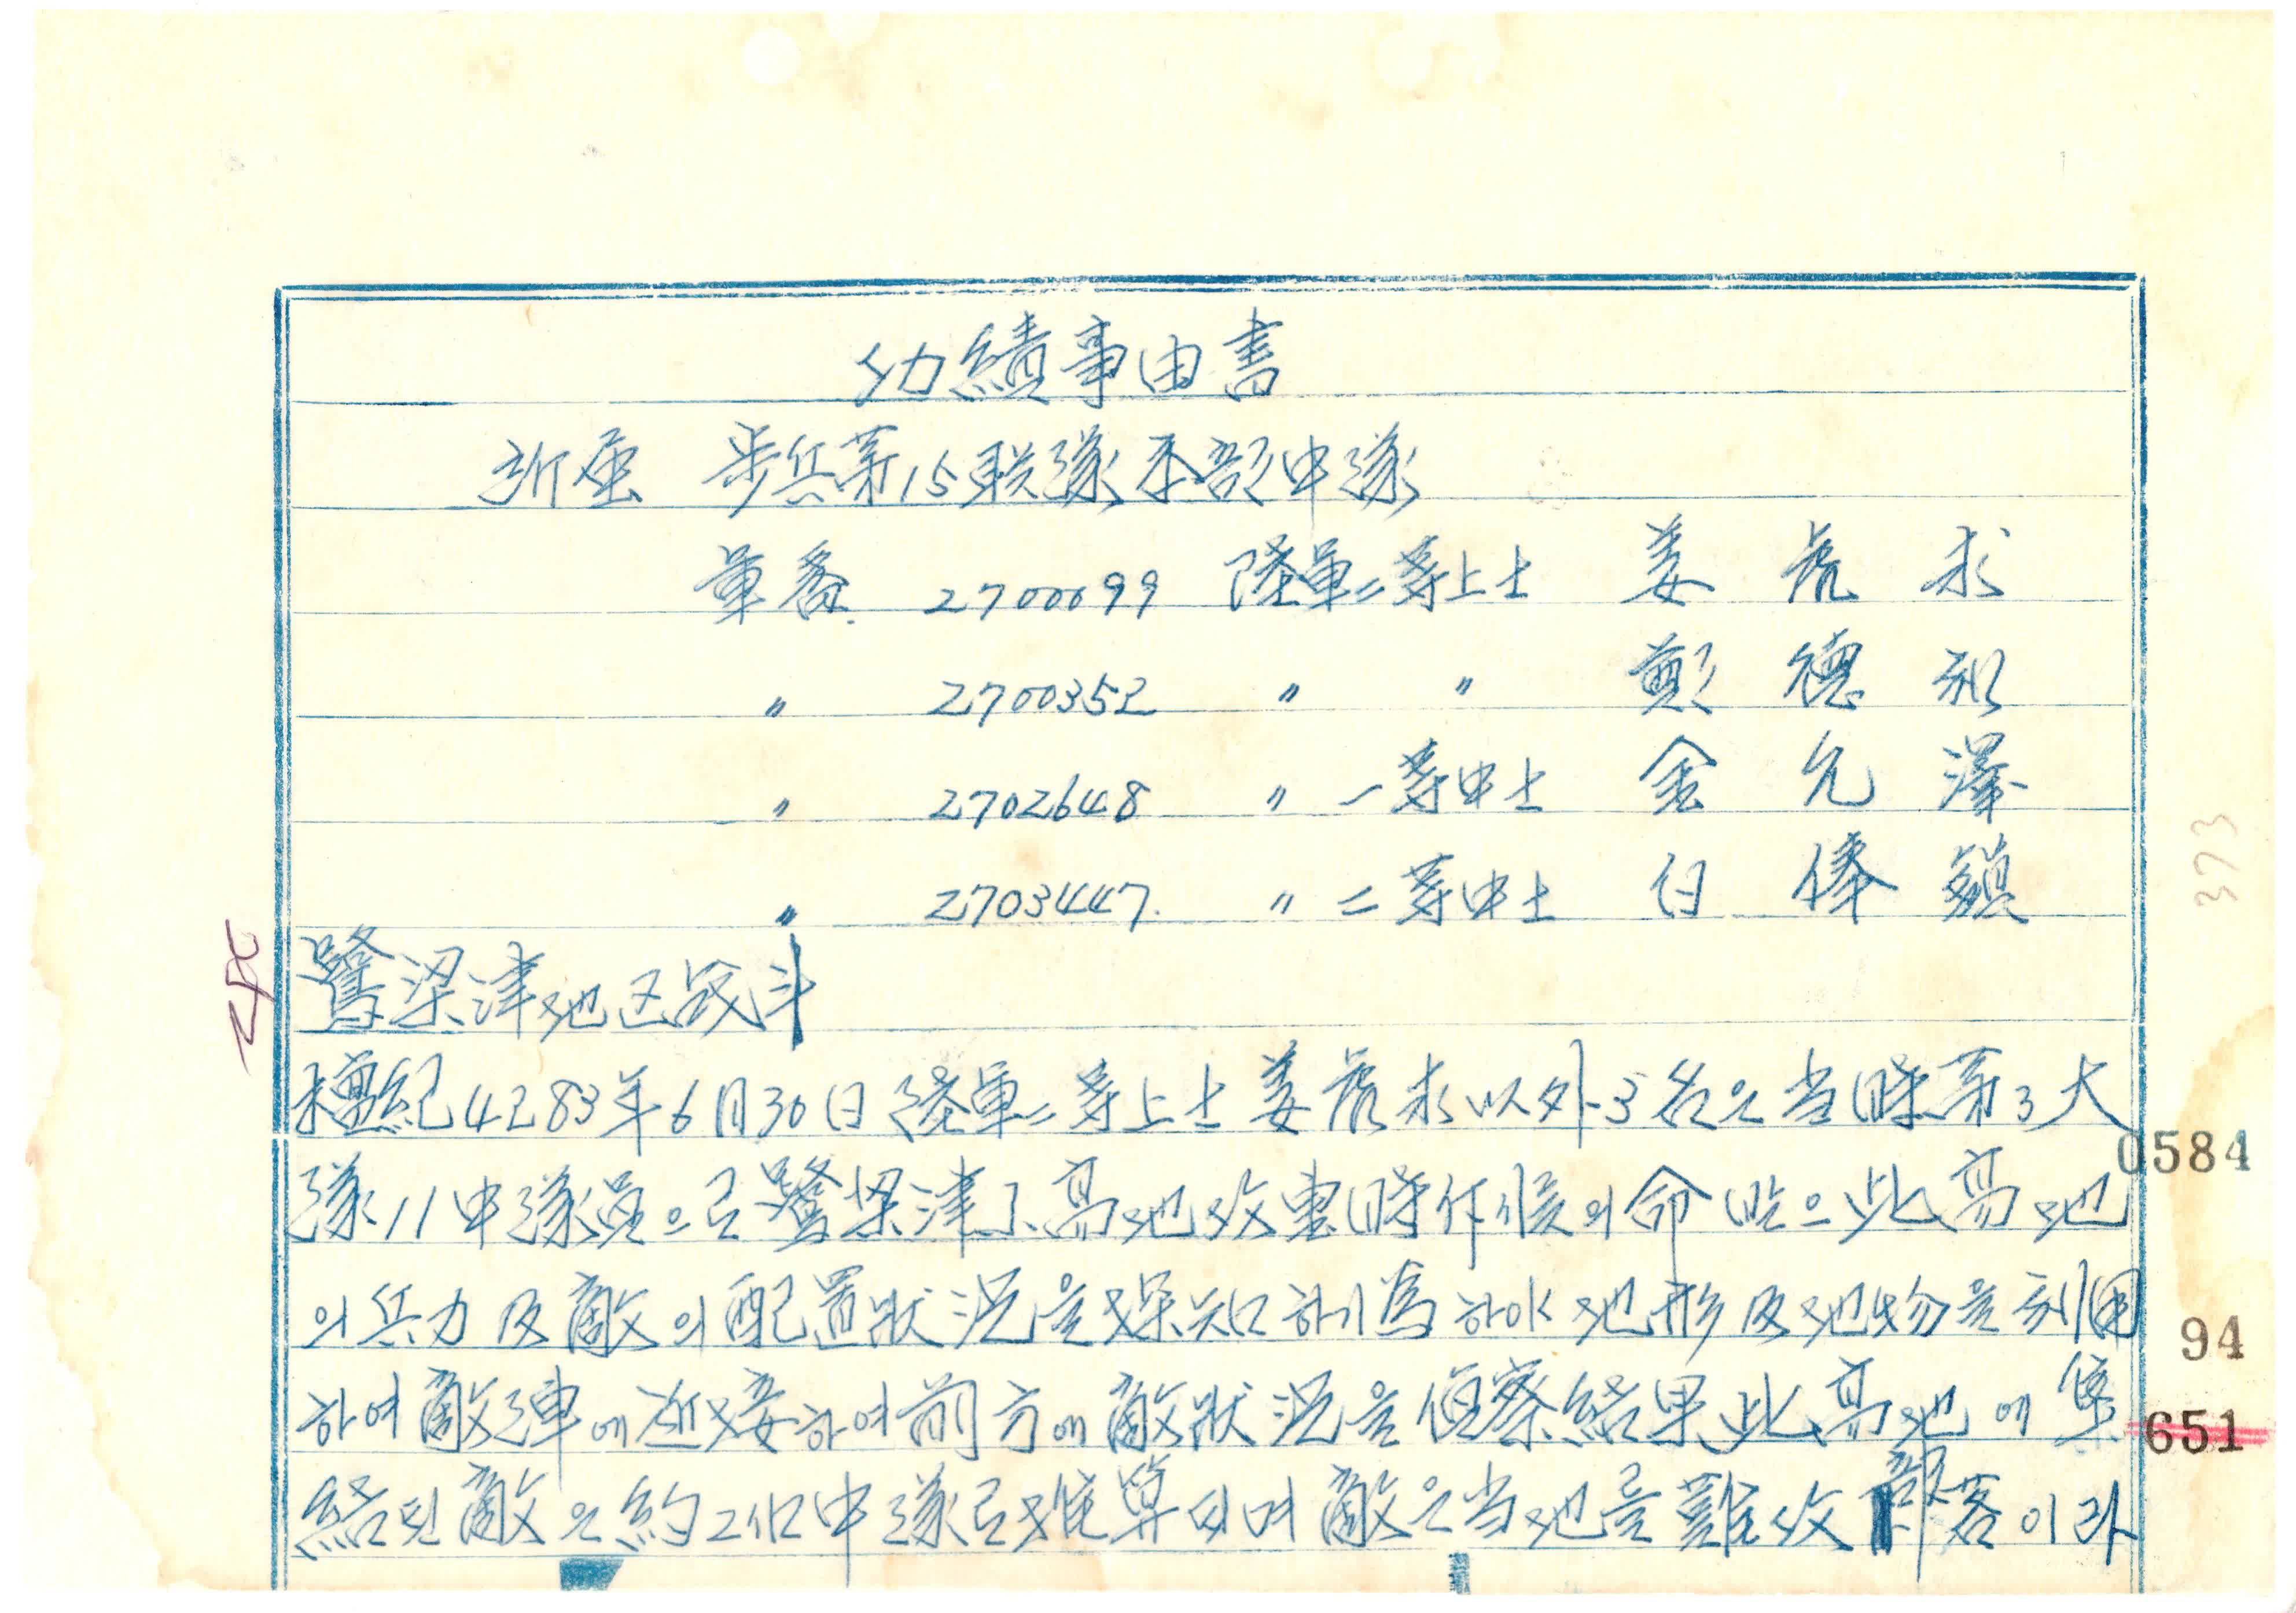 功績事由書
所屬 步兵第15联隊本部中隊
軍番 2700099 陸軍二等上士 姜 虎 求
〃 2700352 〃 〃 彭 德 和
〃 2702648 〃 一等中士 金 允 澤
〃 2703447 〃 二等中士 白 俸 鎮
鷺梁津地区战斗
檀紀4283年6月30日 陸軍二等上士 姜虎求以外3名은 当時第3大
隊11中隊員으로 鷺梁津 高地攻擊時 斥候의 命 此高地
의 兵力 及 敵의 配置狀況을 探知하기 爲하야 地形及地物을 利用
하여 敵彈에 近接하여 前方에 敵狀況을 偵察結果 此高地에 集
結된 敵은 約2個中隊로 推算되며 敵은 当地를 難攻 이라
373
0584
94
651